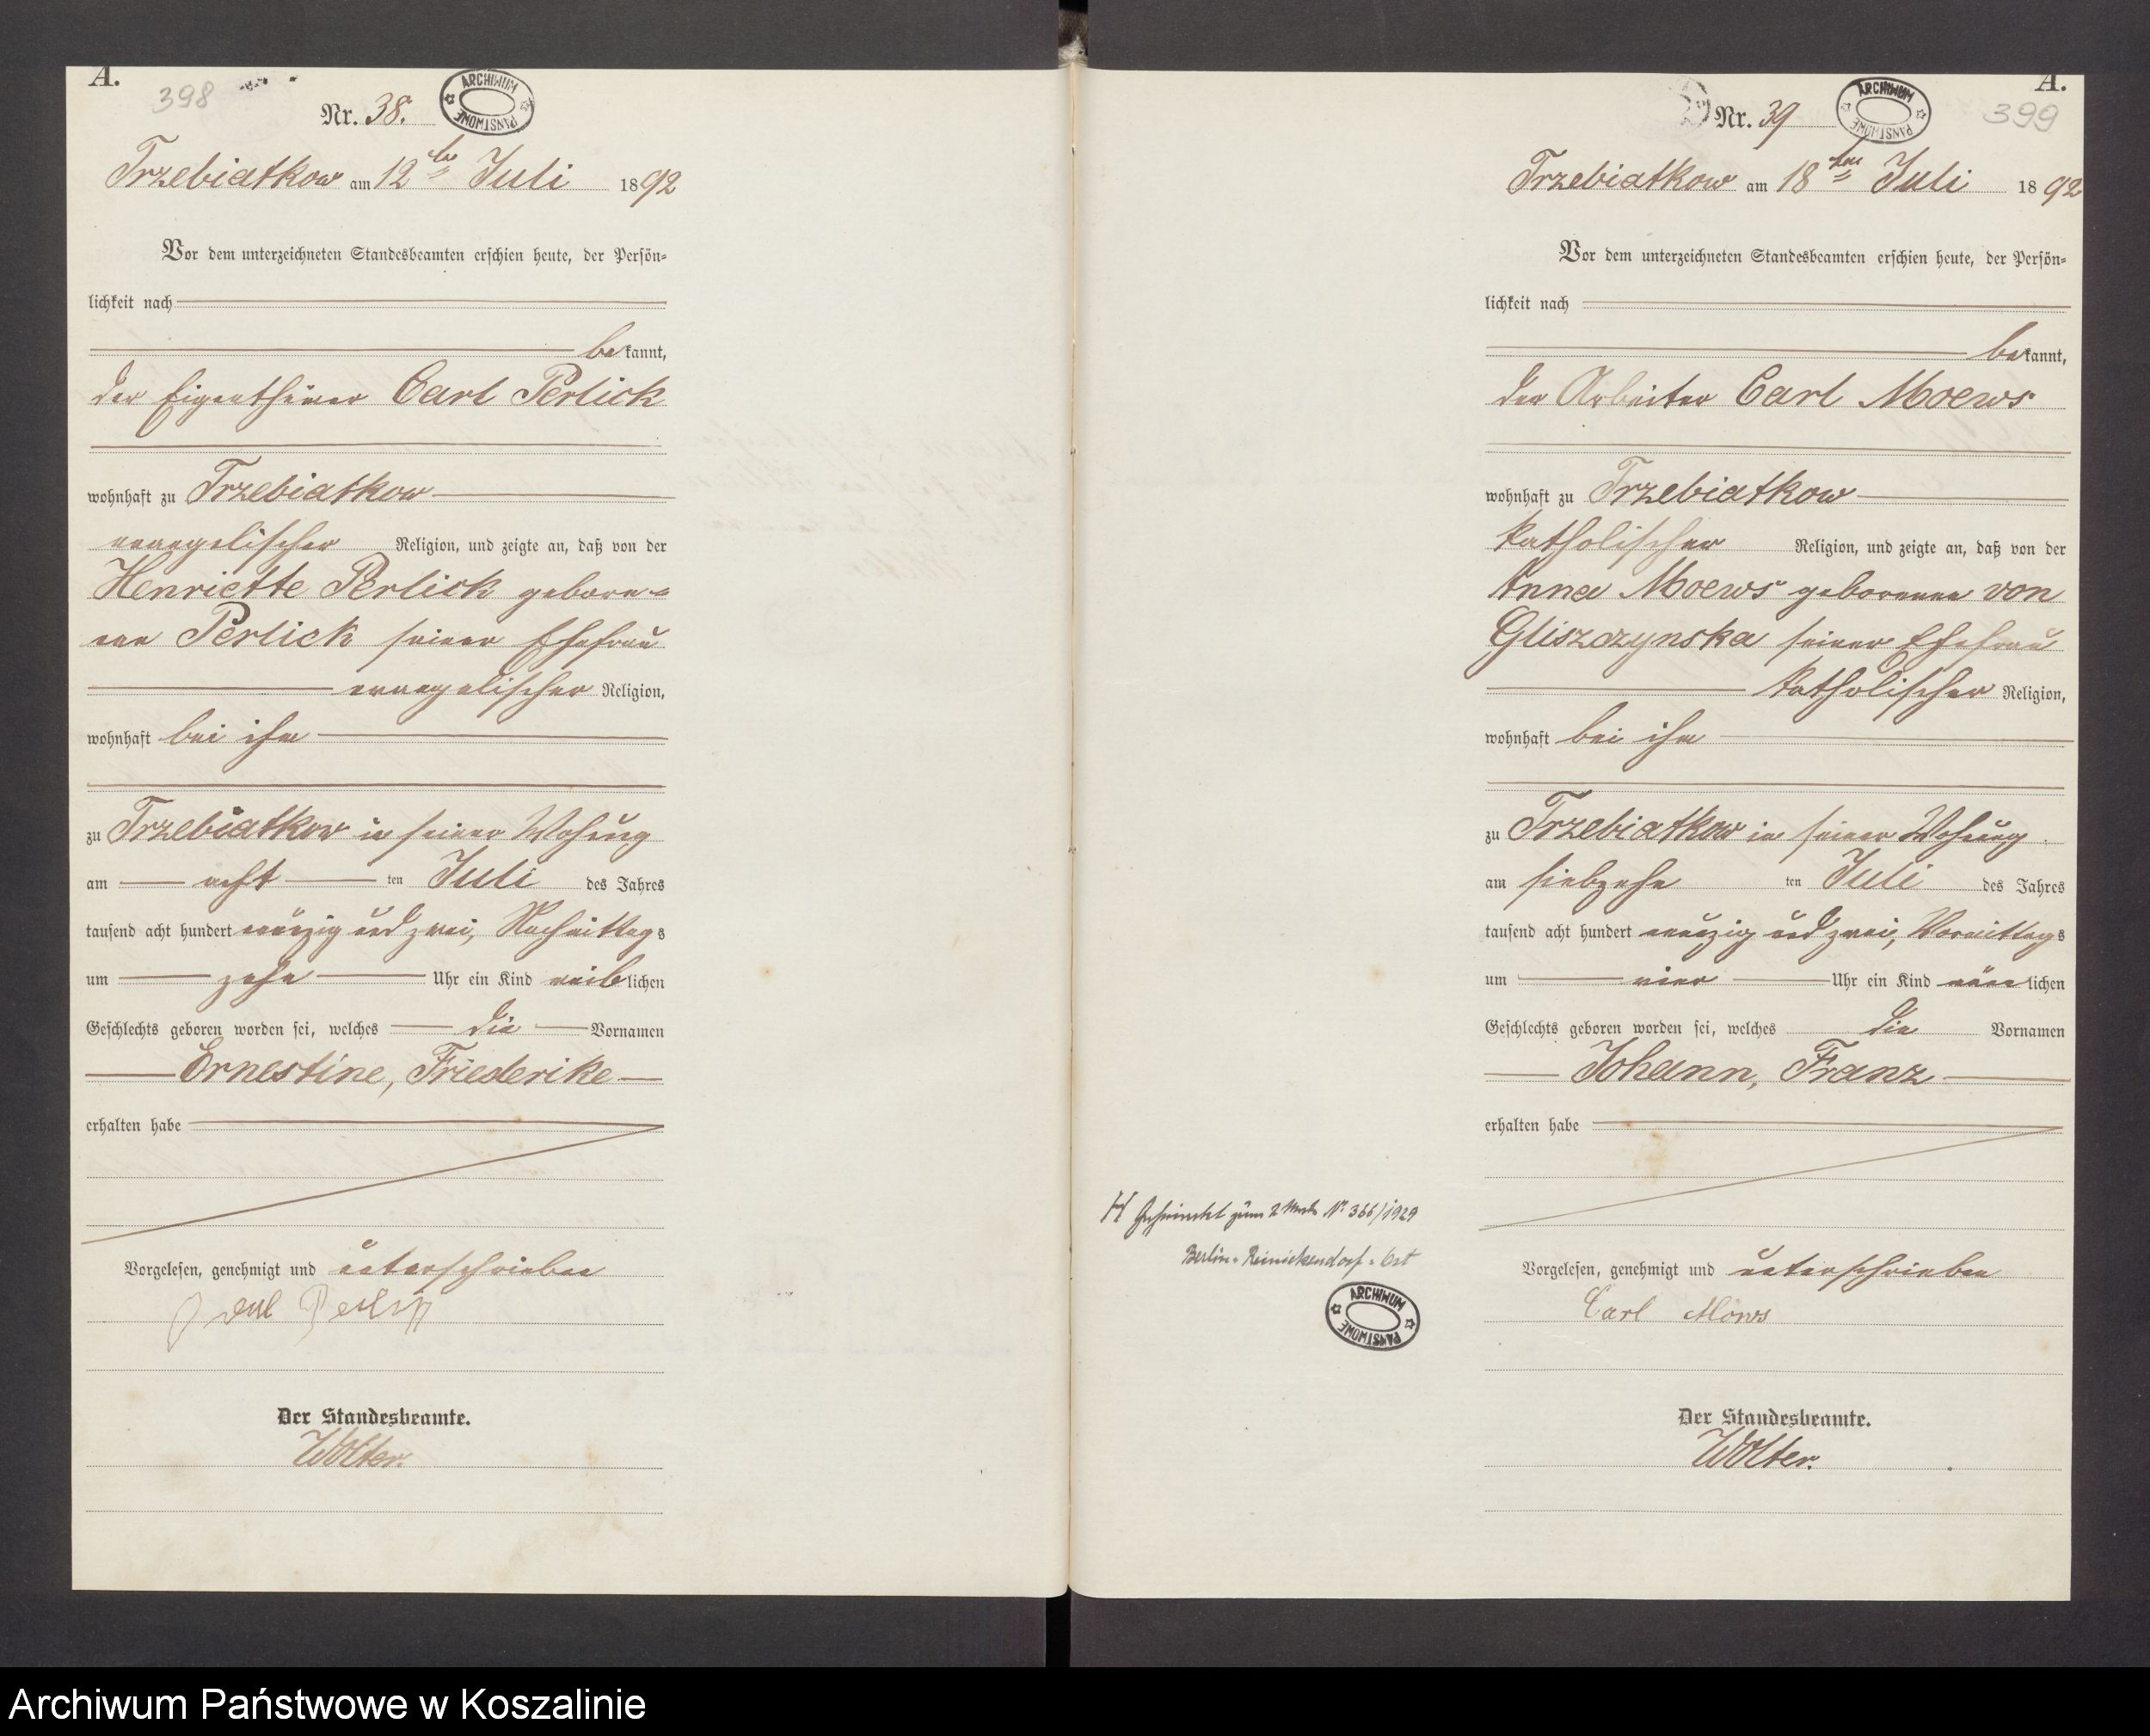 A.
398
Nr. 38.
ARCHIWUM PAŃSTWOWE
Trzebiatkow am 12ten Juli 1892
Vor dem unterzeichneten Standesbeamten erschien heute, der Persön-
lichkeit nach
bekannt,
der Eigenthümer Carl Perlick
wohnhaft zu Trzebiatkow
evangelischer Religion, und zeigte an, daß von der
Henriette Perlick gebore-
nen Perlick seiner Ehefrau
evangelischer Religion,
wohnhaft bei ihm
zu Trzebiatkow in seiner Wohnung
am acht ten Juli des Jahres
tausend acht hundert neunzig und zwei, Nachmittags
um zehn Uhr ein Kind weiblichen
Geschlechts geboren worden sei, welches die Vornamen
Ernestine, Friederike
erhalten habe
Vorgelesen, genehmigt und unterschrieben
Carl Perlick
Der Standesbeamte.
Wolter.
A.
399
Nr. 39
ARCHIWUM PAŃSTWOWE
Trzebiatkow am 18ten Juli 1892
Vor dem unterzeichneten Standesbeamten erschien heute, der Persön-
lichkeit nach
bekannt,
der Arbeiter Carl Moews
wohnhaft zu Trzebiatkow
katholischer Religion, und zeigte an, daß von der
Anna Moews geborenen von
Gliszczynska seiner Ehefrau
katholischer Religion,
wohnhaft bei ihm
zu Trzebiatkow in seiner Wohnung
am siebzehn ten Juli des Jahres
tausend acht hundert neunzig und zwei, Vormittags
um vier Uhr ein Kind männlichen
Geschlechts geboren worden sei, welches die Vornamen
Johann, Franz
erhalten habe
H Geheiratet zum 2 Male Nr 366/1929
Berlin-Reinickendorf-Ost
ARCHIWUM PAŃSTWOWE
Vorgelesen, genehmigt und unterschrieben
Carl Möws
Der Standesbeamte.
Wolter.
Archiwum Państwowe w Koszalinie